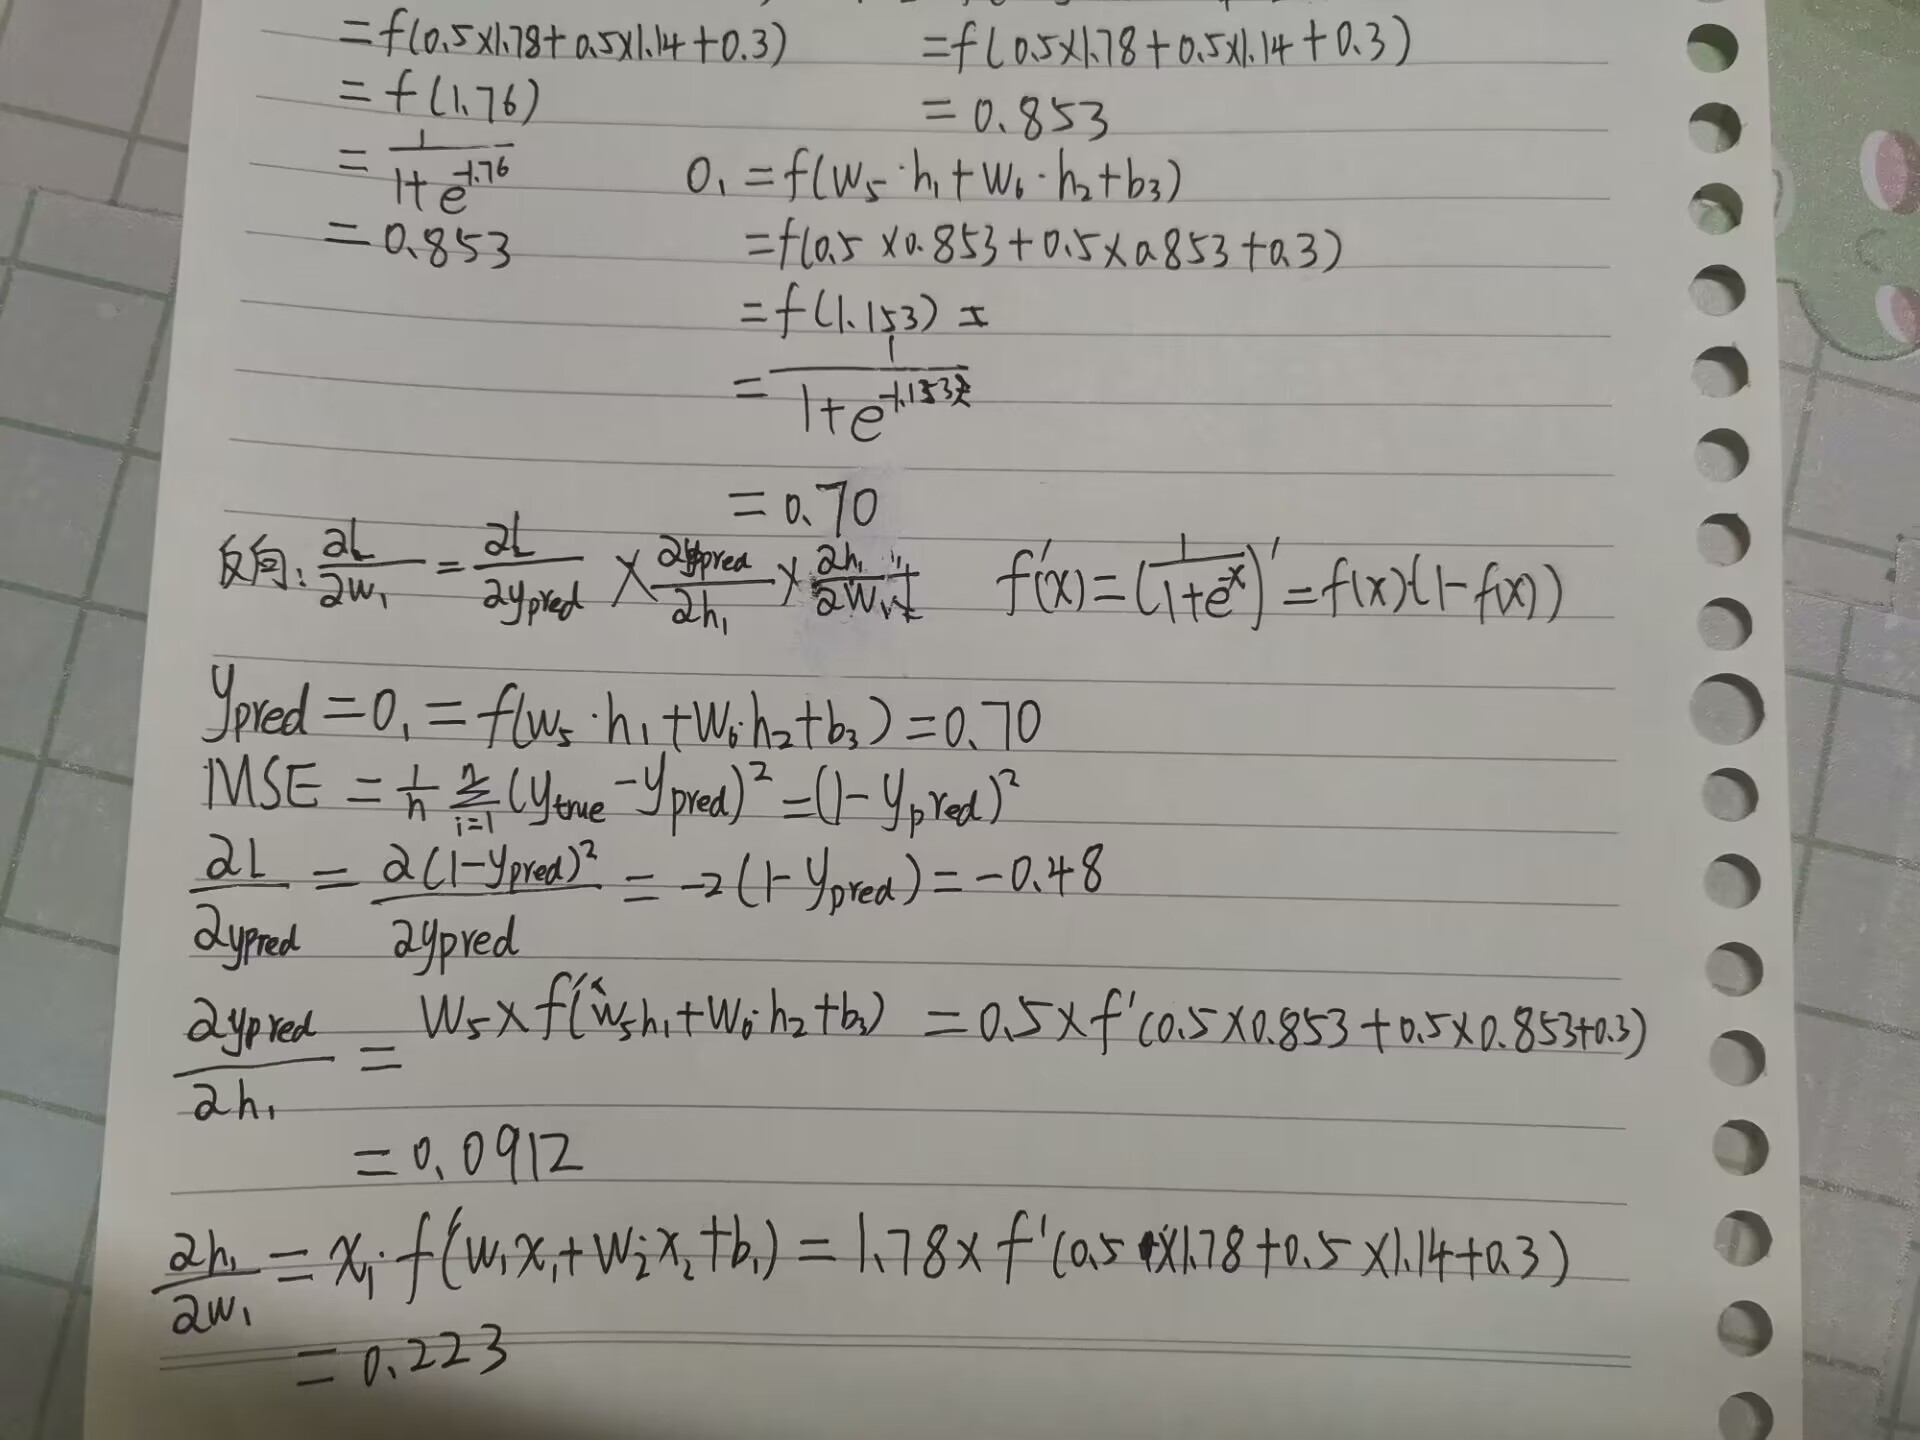 =f(0.5×1.78+0.5×1.14+0.3) =f(0.5×1.78+0.5×1.14+0.3)
=f(1.76) =0.853
=1/(1+e^-1.76) O₁=f(w₅·h₁+w₆·h₂+b₃)
=0.853 =f(0.5×0.853+0.5×0.853+0.3)
=f(1.153)=
=1/(1+e^-1.153)
=0.70
反向: ∂L/∂w₁=∂L/∂ypred×∂ypred/∂h₁×∂h₁/∂w₁ f'(x)=(1/(1+e^-x))'=f(x)(1-f(x))
ypred=O₁=f(w₅·h₁+w₆·h₂+b₃)=0.70
MSE=1/n Σ i=1 n (ytrue-ypred)²=(1-ypred)²
∂L/∂ypred=∂(1-ypred)²/∂ypred=-2(1-ypred)=-0.48
∂ypred/∂h₁=w₅×f'(w₅h₁+w₆·h₂+b₃)=0.5×f'(0.5×0.853+0.5×0.853+0.3)
=0.0912
∂h₁/∂w₁=x₁·f'(w₁x₁+w₂x₂+b₁)=1.78×f'(0.5×1.78+0.5×1.14+0.3)
=0.223